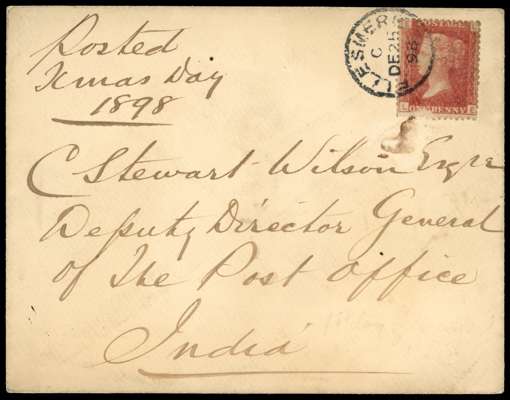 Posted
Xmas Day
1898
ELLESMERE
C
DE 25
98
L E
ONE PENNY
C Stewart-Wilson Esqre
Deputy Director General
of The Post Office
India